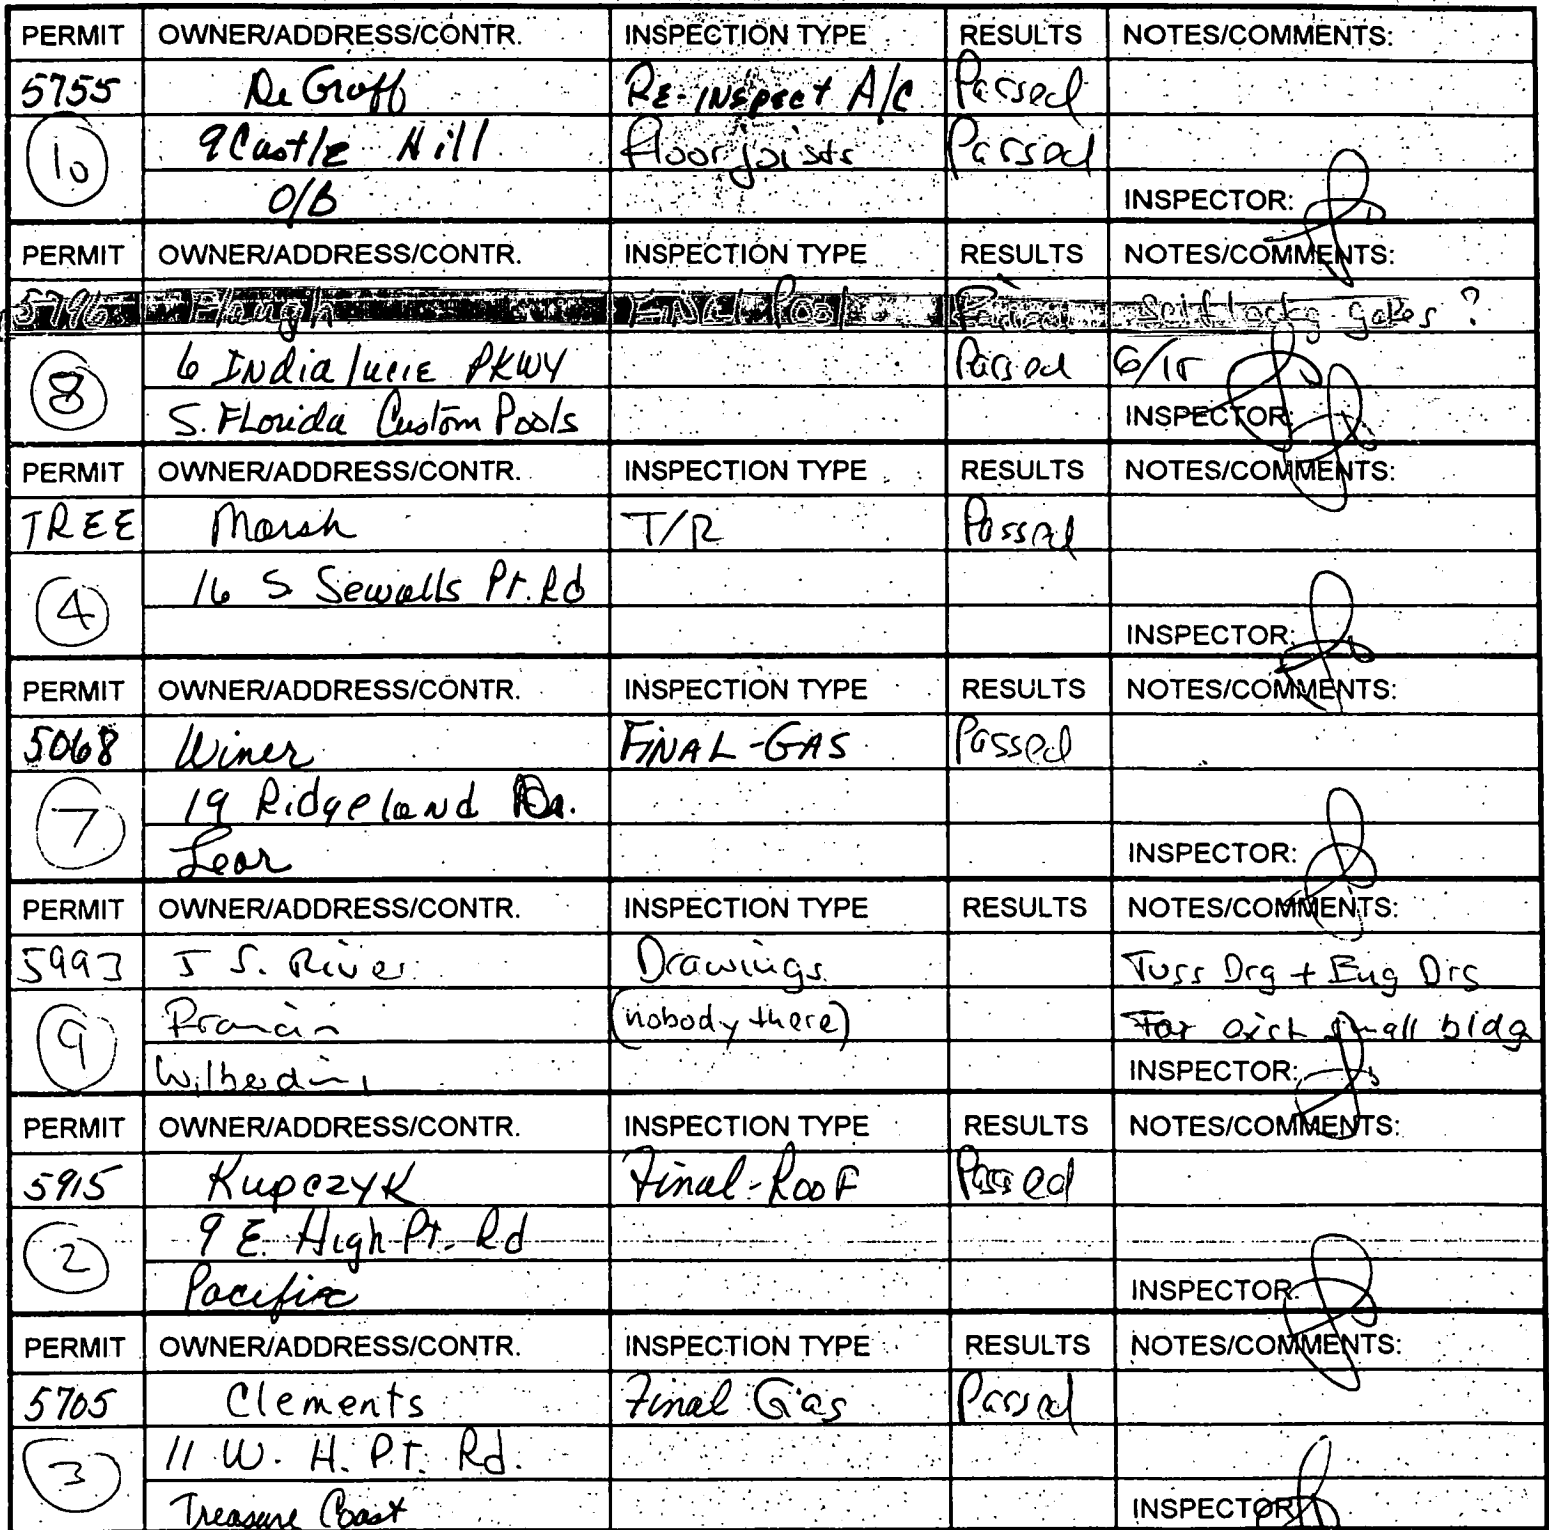 PERMIT OWNER/ADDRESS/CONTR. INSPECTION TYPE RESULTS NOTES/COMMENTS:
5755 De Groff RE-INSPECT A/C Passed
10 9 Castle Hill floor joists Passed
O/B INSPECTOR:
PERMIT OWNER/ADDRESS/CONTR. INSPECTION TYPE RESULTS NOTES/COMMENTS:
5796 FINAL Pool gates ?
8 6 Indialucie PKWY Passed 6/15
S. Florida Custom Pools INSPECTOR:
PERMIT OWNER/ADDRESS/CONTR. INSPECTION TYPE RESULTS NOTES/COMMENTS:
TREE Marsh T/R Passed
4 16 S Sewalls Pt. Rd
INSPECTOR:
PERMIT OWNER/ADDRESS/CONTR. INSPECTION TYPE RESULTS NOTES/COMMENTS:
5068 Winer FINAL-GAS Passed
7 19 Ridgeland Dr.
Lear INSPECTOR:
PERMIT OWNER/ADDRESS/CONTR. INSPECTION TYPE RESULTS NOTES/COMMENTS:
5993 S. River Drawings Drg + Eng
9 (nobody there) small bldg
INSPECTOR:
PERMIT OWNER/ADDRESS/CONTR. INSPECTION TYPE RESULTS NOTES/COMMENTS:
5915 Kupczyk Final-Roof Passed
2 9 E. High Pt. Rd
Pacific INSPECTOR:
PERMIT OWNER/ADDRESS/CONTR. INSPECTION TYPE RESULTS NOTES/COMMENTS:
5705 Clements Final Gas Passed
3 11 W. H. PT. Rd.
Treasure Coast INSPECTOR